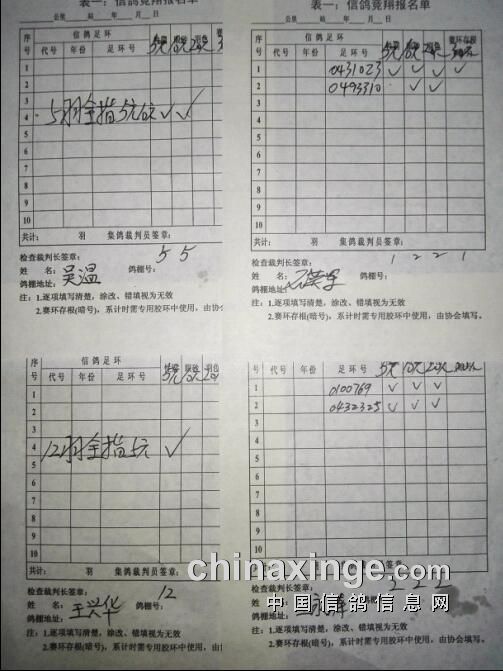 表一：信鸽竞翔报名单
公里 站 年 月 日
序号 信鸽足环
代号 年份 足环号
1
2
3
4 5羽全指5元10元 ✓ ✓
5
6
7
8
9
10
共计： 羽 集鸽裁判员签章：
检查裁判长签章： 5 5
姓 名：吴温 鸽棚号：
鸽棚地址：
注：1.逐项填写清楚，涂改、错填视为无效
2.赛环存根(暗号)，系计时需专用胶环中使用，由协会填写。
表一：信鸽竞翔报名单
公里 站 年 月 日
序号 信鸽足环 赛环存根
代号 年份 足环号 5元 10元
1 0431023 ✓ ✓ ✓ ✓
2 0493310 ✓ ✓
3
4
5
6
7
8
9
10
共计： 羽 集鸽裁判员签章：
检查裁判长签章： 1 2 2 1
姓 名： 鸽棚号：
鸽棚地址：
注：1.逐项填写清楚，涂改、错填视为无效
2.赛环存根(暗号)，系计时需专用胶环中使用，由协会填写。
序号 信鸽足环
代号 年份 足环号
1
2
3
4 12羽全指5元 ✓
5
6
7
8
9
10
共计： 羽 集鸽裁判员签章：
检查裁判长签章： 12
姓 名：王兴华 鸽棚号：
鸽棚地址：
注：1.逐项填写清楚，涂改、错填视为无效
2.赛环存根(暗号)，系计时需专用胶环中使用，由协会填写。
序号 代号 年份 足环号 5元 10元
1 0100769 ✓ ✓ ✓
2 0432325 ✓ ✓ ✓
3
4
5
6
7
8
9
10
共计： 羽 集鸽裁判员签章：
检查裁判长签章： 2 2 2
姓 名：
鸽棚地址：
注：1.逐项填写清楚，涂改、错填视为无效
2.赛环存根(暗号)，系计时需专用胶环中使用，由协会填写。
chinaxinge.com
中国信鸽信息网